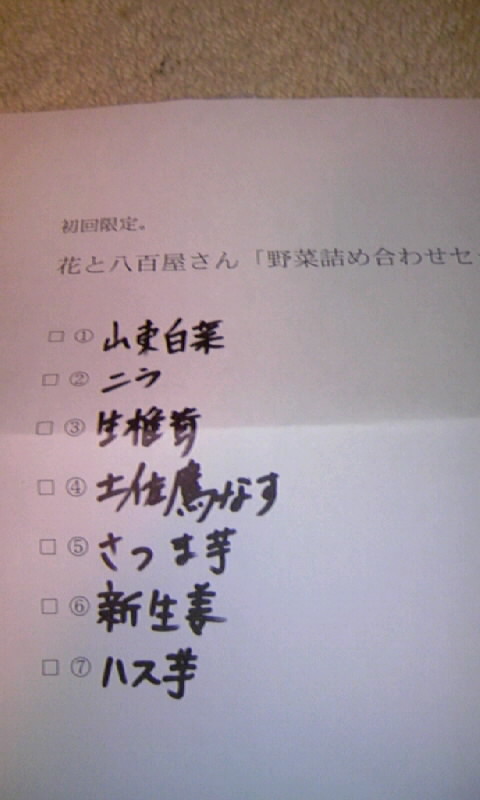 初回限定。
花と八百屋さん「野菜詰め合わせセ
□ ① 山東白菜
□ ② ニラ
□ ③ 生椎茸
□ ④ 土佐鷹なす
□ ⑤ さつま芋
□ ⑥ 新生姜
□ ⑦ ハス芋